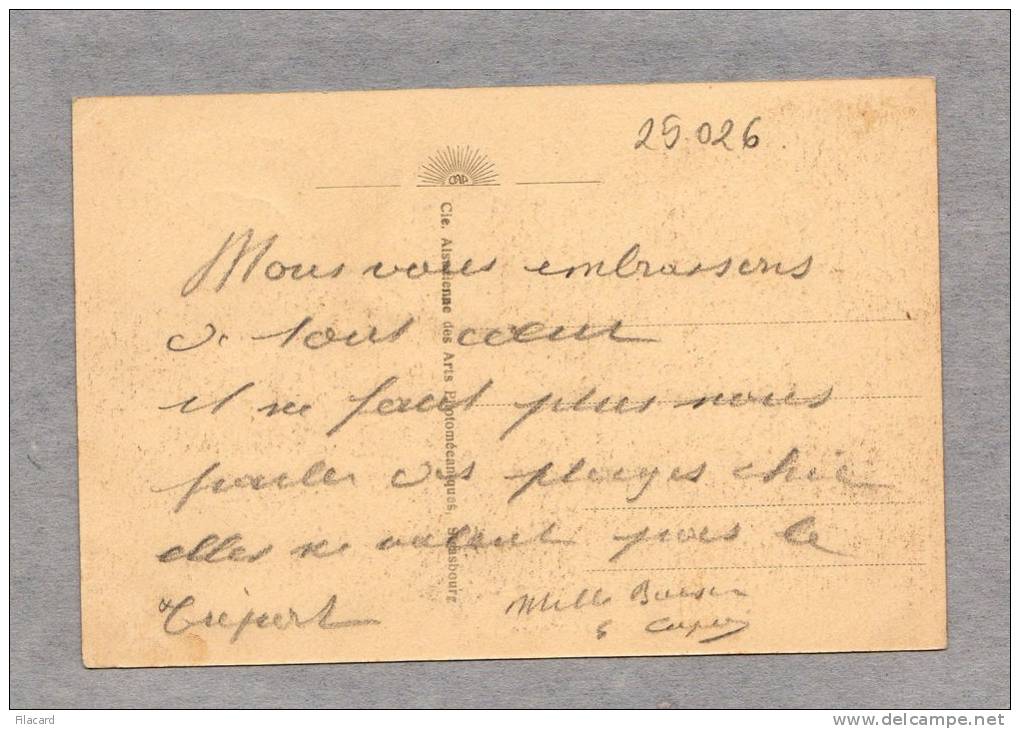 25.026
CAP
Cie. Alsacienne des Arts Photomécaniques, Strasbourg
Nous vous embrassons
de tout cœur
il ne faut plus nous
parler des plages chic
elles ne valent pas le
Tréport
Mille
filacard
www.delcampe.net